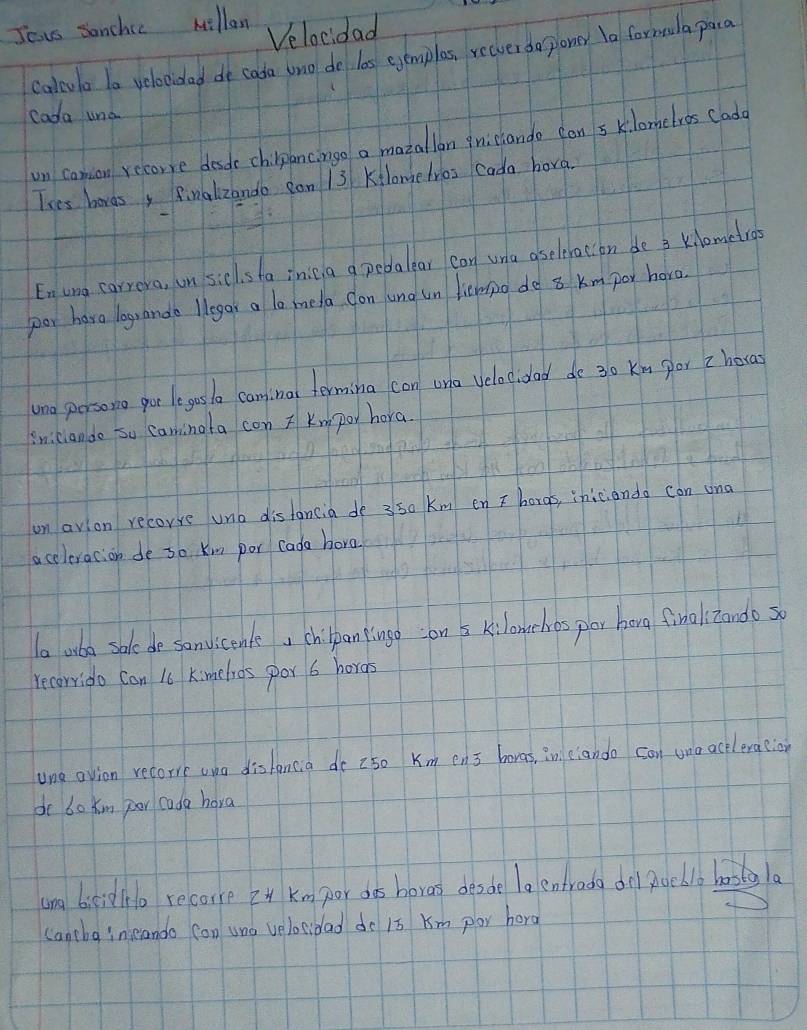 Jesus Sanchez Millan
Velocidad
calcula la velocidad de cada uno de los ejemplos, recuerda poner la formula para
cada una
un camion recorre desde chilpancingo a mazatlan iniciando con 5 kilometros cada
Tres horas y finalizando con 13 Kilometros cada hora.
En una carrera, un siclista inicia a pedalear con una aseleracion de 3 kilometros
por hora logrando llegar a la meta con una un tiempo de 8 km por hora.
una persona que le gusta caminar termina con una velocidad de 30 Km por 2 horas
iniciando su caminata con 7 km por hora.
un avion recorre una distancia de 350 Km en 7 horas, iniciando con una
aceleracion de 50 km por cada hora.
la urba sale de sanvicente a chilpansingo con 5 kilometros por hora finalizando so
recorrido con 16 kimetros por 6 horas
una avion recorre una distancia de 250 Km en 5 horas, iniciando con una aceleracion
de 60 km por cada hora
una bicicleta recorre 24 Km por dos horas desde la entrada del pueblo hasta la
cancha inicando con una velocidad de 15 Km por hora